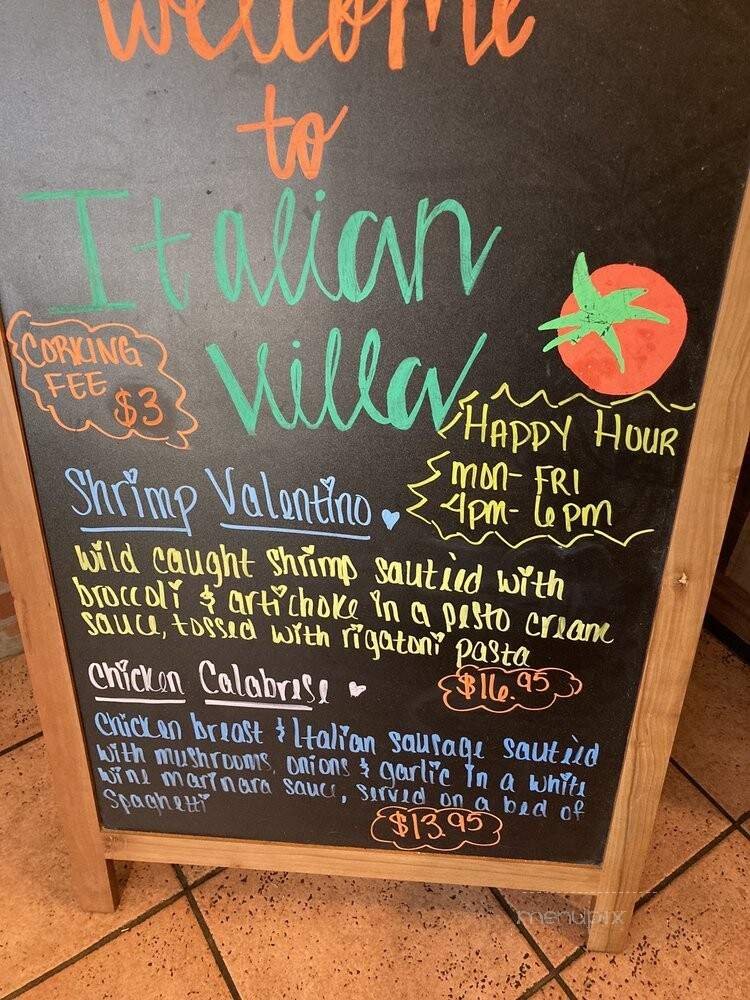 Welcome
to
Italian
Villa
CORKING
FEE
$3
HAPPY HOUR
MON- FRI
4pm- 6pm
Shrimp Valentino
wild caught shrimp sautéed with
broccoli & artichoke in a pesto cream
sauce, tossed with rigatoni pasta
$16.95
Chicken Calabrese
chicken breast & Italian sausage sautéed
with mushrooms, onions & garlic in a white
wine marinara sauce, served on a bed of
Spaghetti
$13.95
menupix